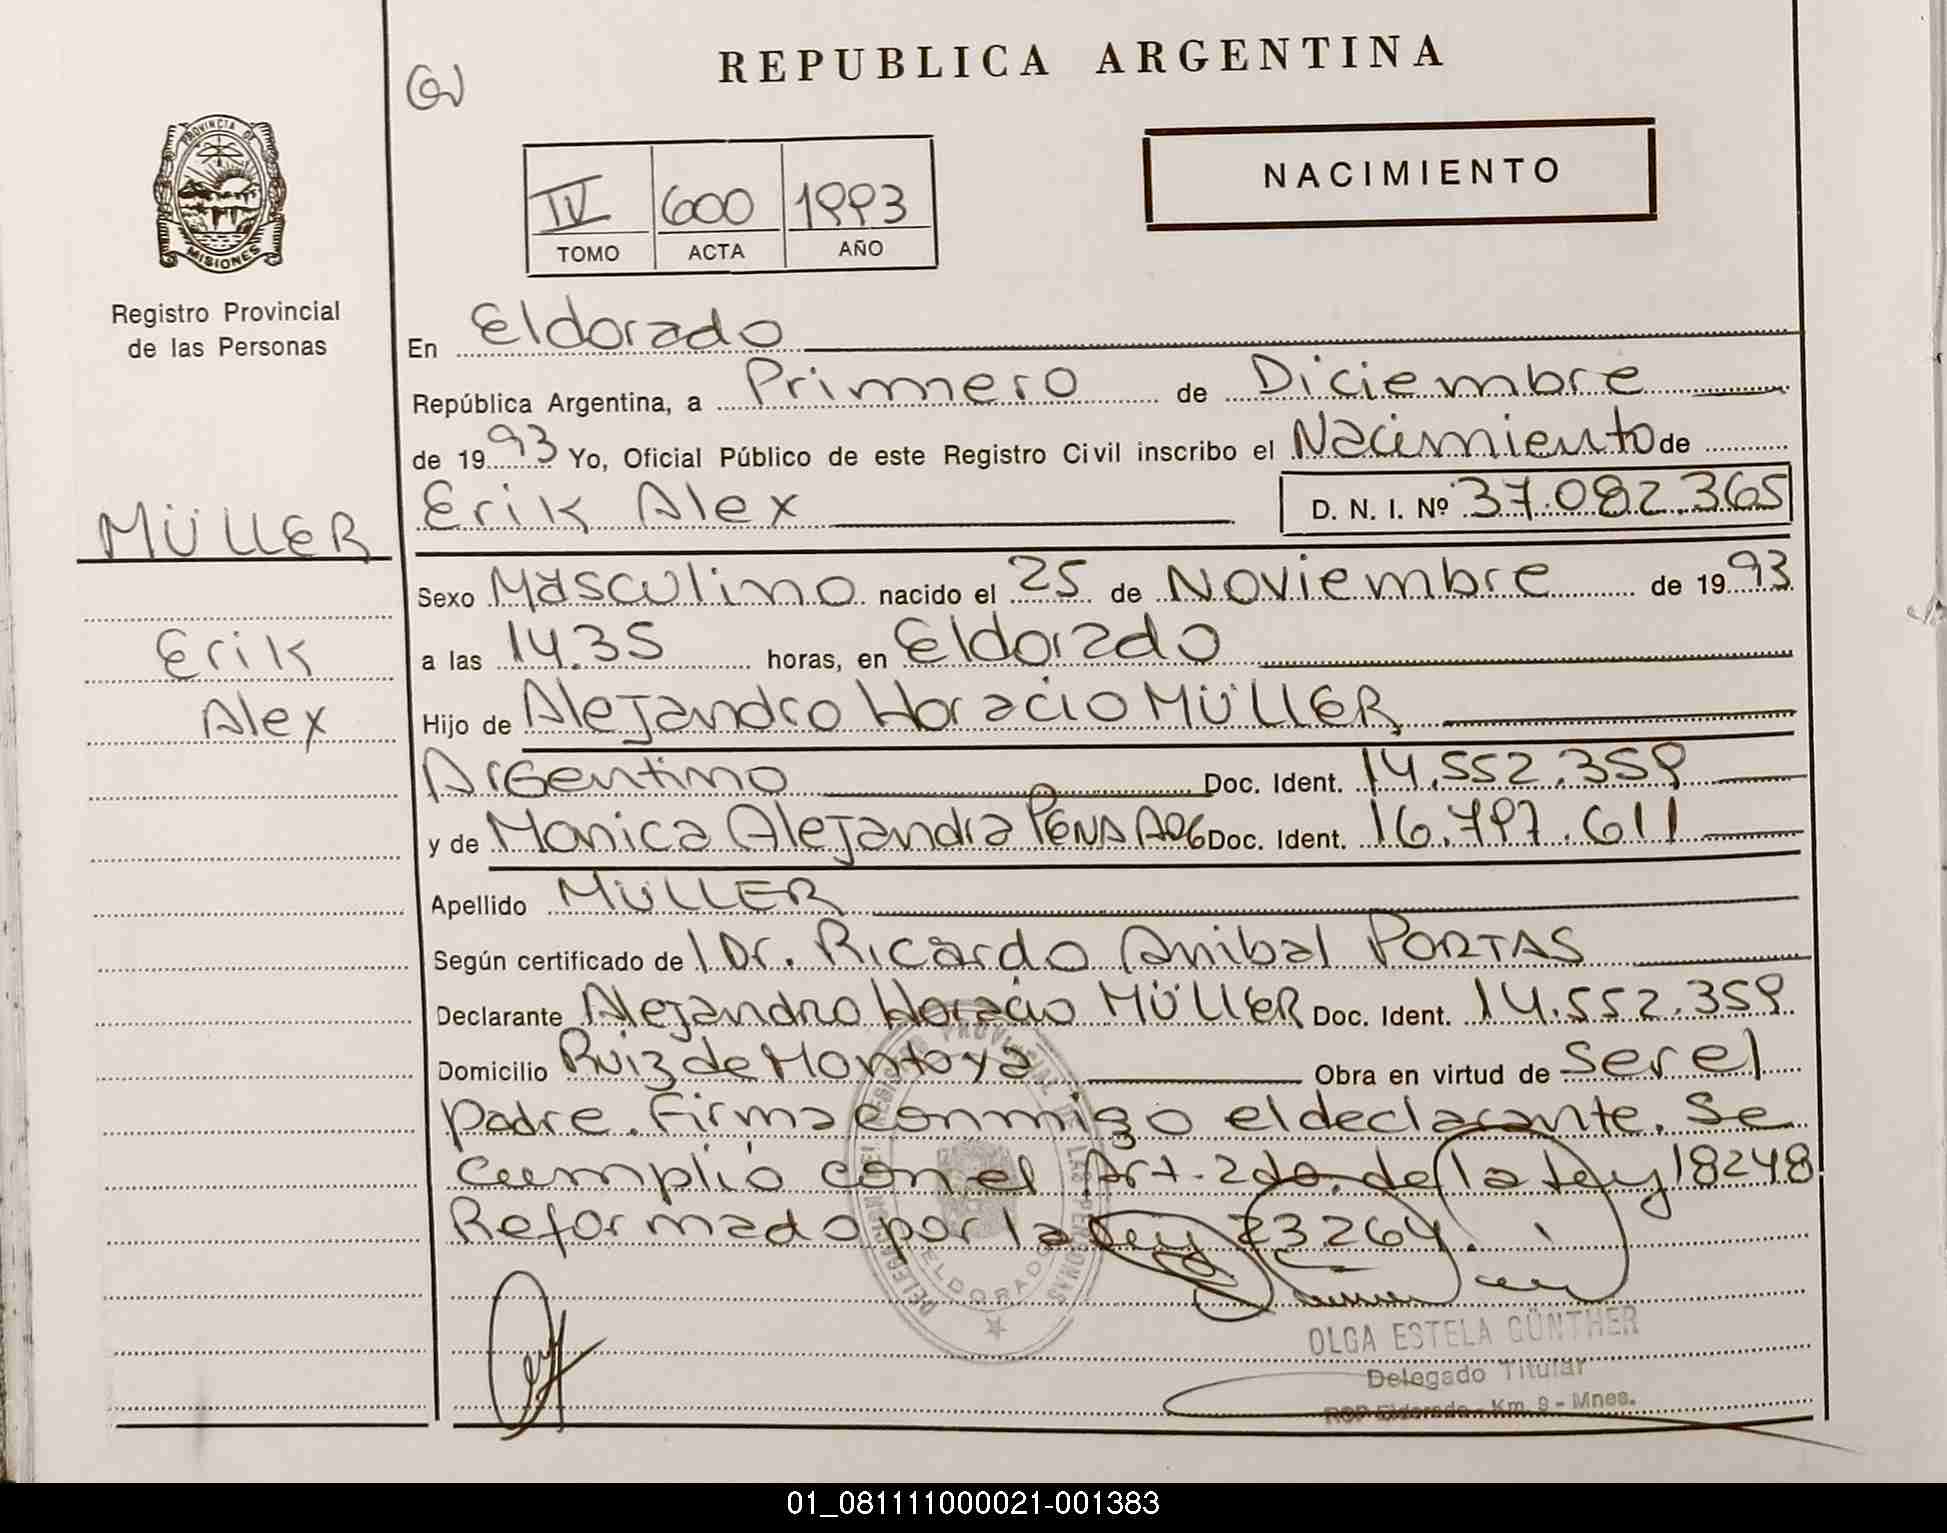 REPUBLICA ARGENTINA
NACIMIENTO
IV 600 1993
TOMO ACTA AÑO
PROVINCIA DE MISIONES
Registro Provincial
de las Personas
MÜLLER
Erik
Alex
En Eldorado
República Argentina, a Primero de Diciembre
de 1993 Yo, Oficial Público de este Registro Civil inscribo el Nacimiento de
Erik Alex D. N. I. Nº 37.082.365
Sexo Masculino nacido el 25 de Noviembre de 1993
a las 14.35 horas, en Eldorado
Hijo de Alejandro Horacio MÜLLER
Argentino Doc. Ident. 14.552.359
y de Monica Alejandra PENA Arg Doc. Ident. 16.797.611
Apellido MÜLLER
Según certificado de l Dr. Ricardo Anibal PORTAS
Declarante Alejandro Horacio MÜLLER Doc. Ident. 14.552.359
Domicilio Ruiz de Montoya Obra en virtud de ser el
padre. Firma conmigo el declarante. Se
cumplió con el Art. 2do. de la Ley 18248
Reformado por la Ley 23264.
DELEGACION DEL REGISTRO PROVINCIAL DE LAS PERSONAS
ELDORADO
OLGA ESTELA GÜNTHER
Delegado Titular
RCP Eldorado - Km. 9 - Mnes.
01_081111000021-001383